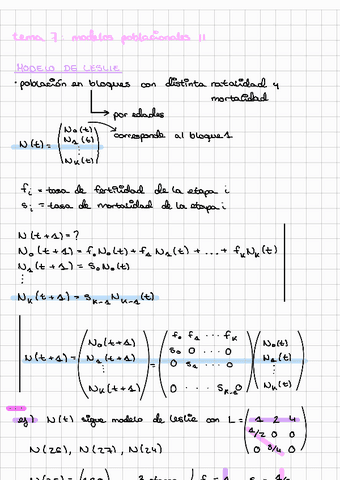 tema 7: modelos poblacionales II
MODELO DE LESLIE
· población en bloques con distinta natalidad y
mortalidad
por edades
N(t) = ( N₀(t) N₁(t) ⋮ Nₖ(t) ) corresponde al bloque 1
fᵢ = tasa de fertilidad de la etapa i
sᵢ = tasa de mortalidad de la etapa i
N(t+1) = ?
N₀(t+1) = f₀N₀(t) + f₁N₁(t) + ... + fₖNₖ(t)
N₁(t+1) = s₀N₀(t)
⋮
Nₖ(t+1) = sₖ₋₁Nₖ₋₁(t)
N(t+1) = ( N₀(t+1) N₁(t+1) ⋮ Nₖ(t+1) ) = ( f₀ f₁ ... fₖ s₀ 0 ... 0 0 s₁ ... 0 0 ... sₖ₋₁ 0 ) ( N₀(t) N₁(t) ⋮ Nₖ(t) )
eg) N(t) sigue modelo de leslie con L = ( 1 2 4 1/2 0 0 0 3/4 0 )
N(26), N(27), N(24)